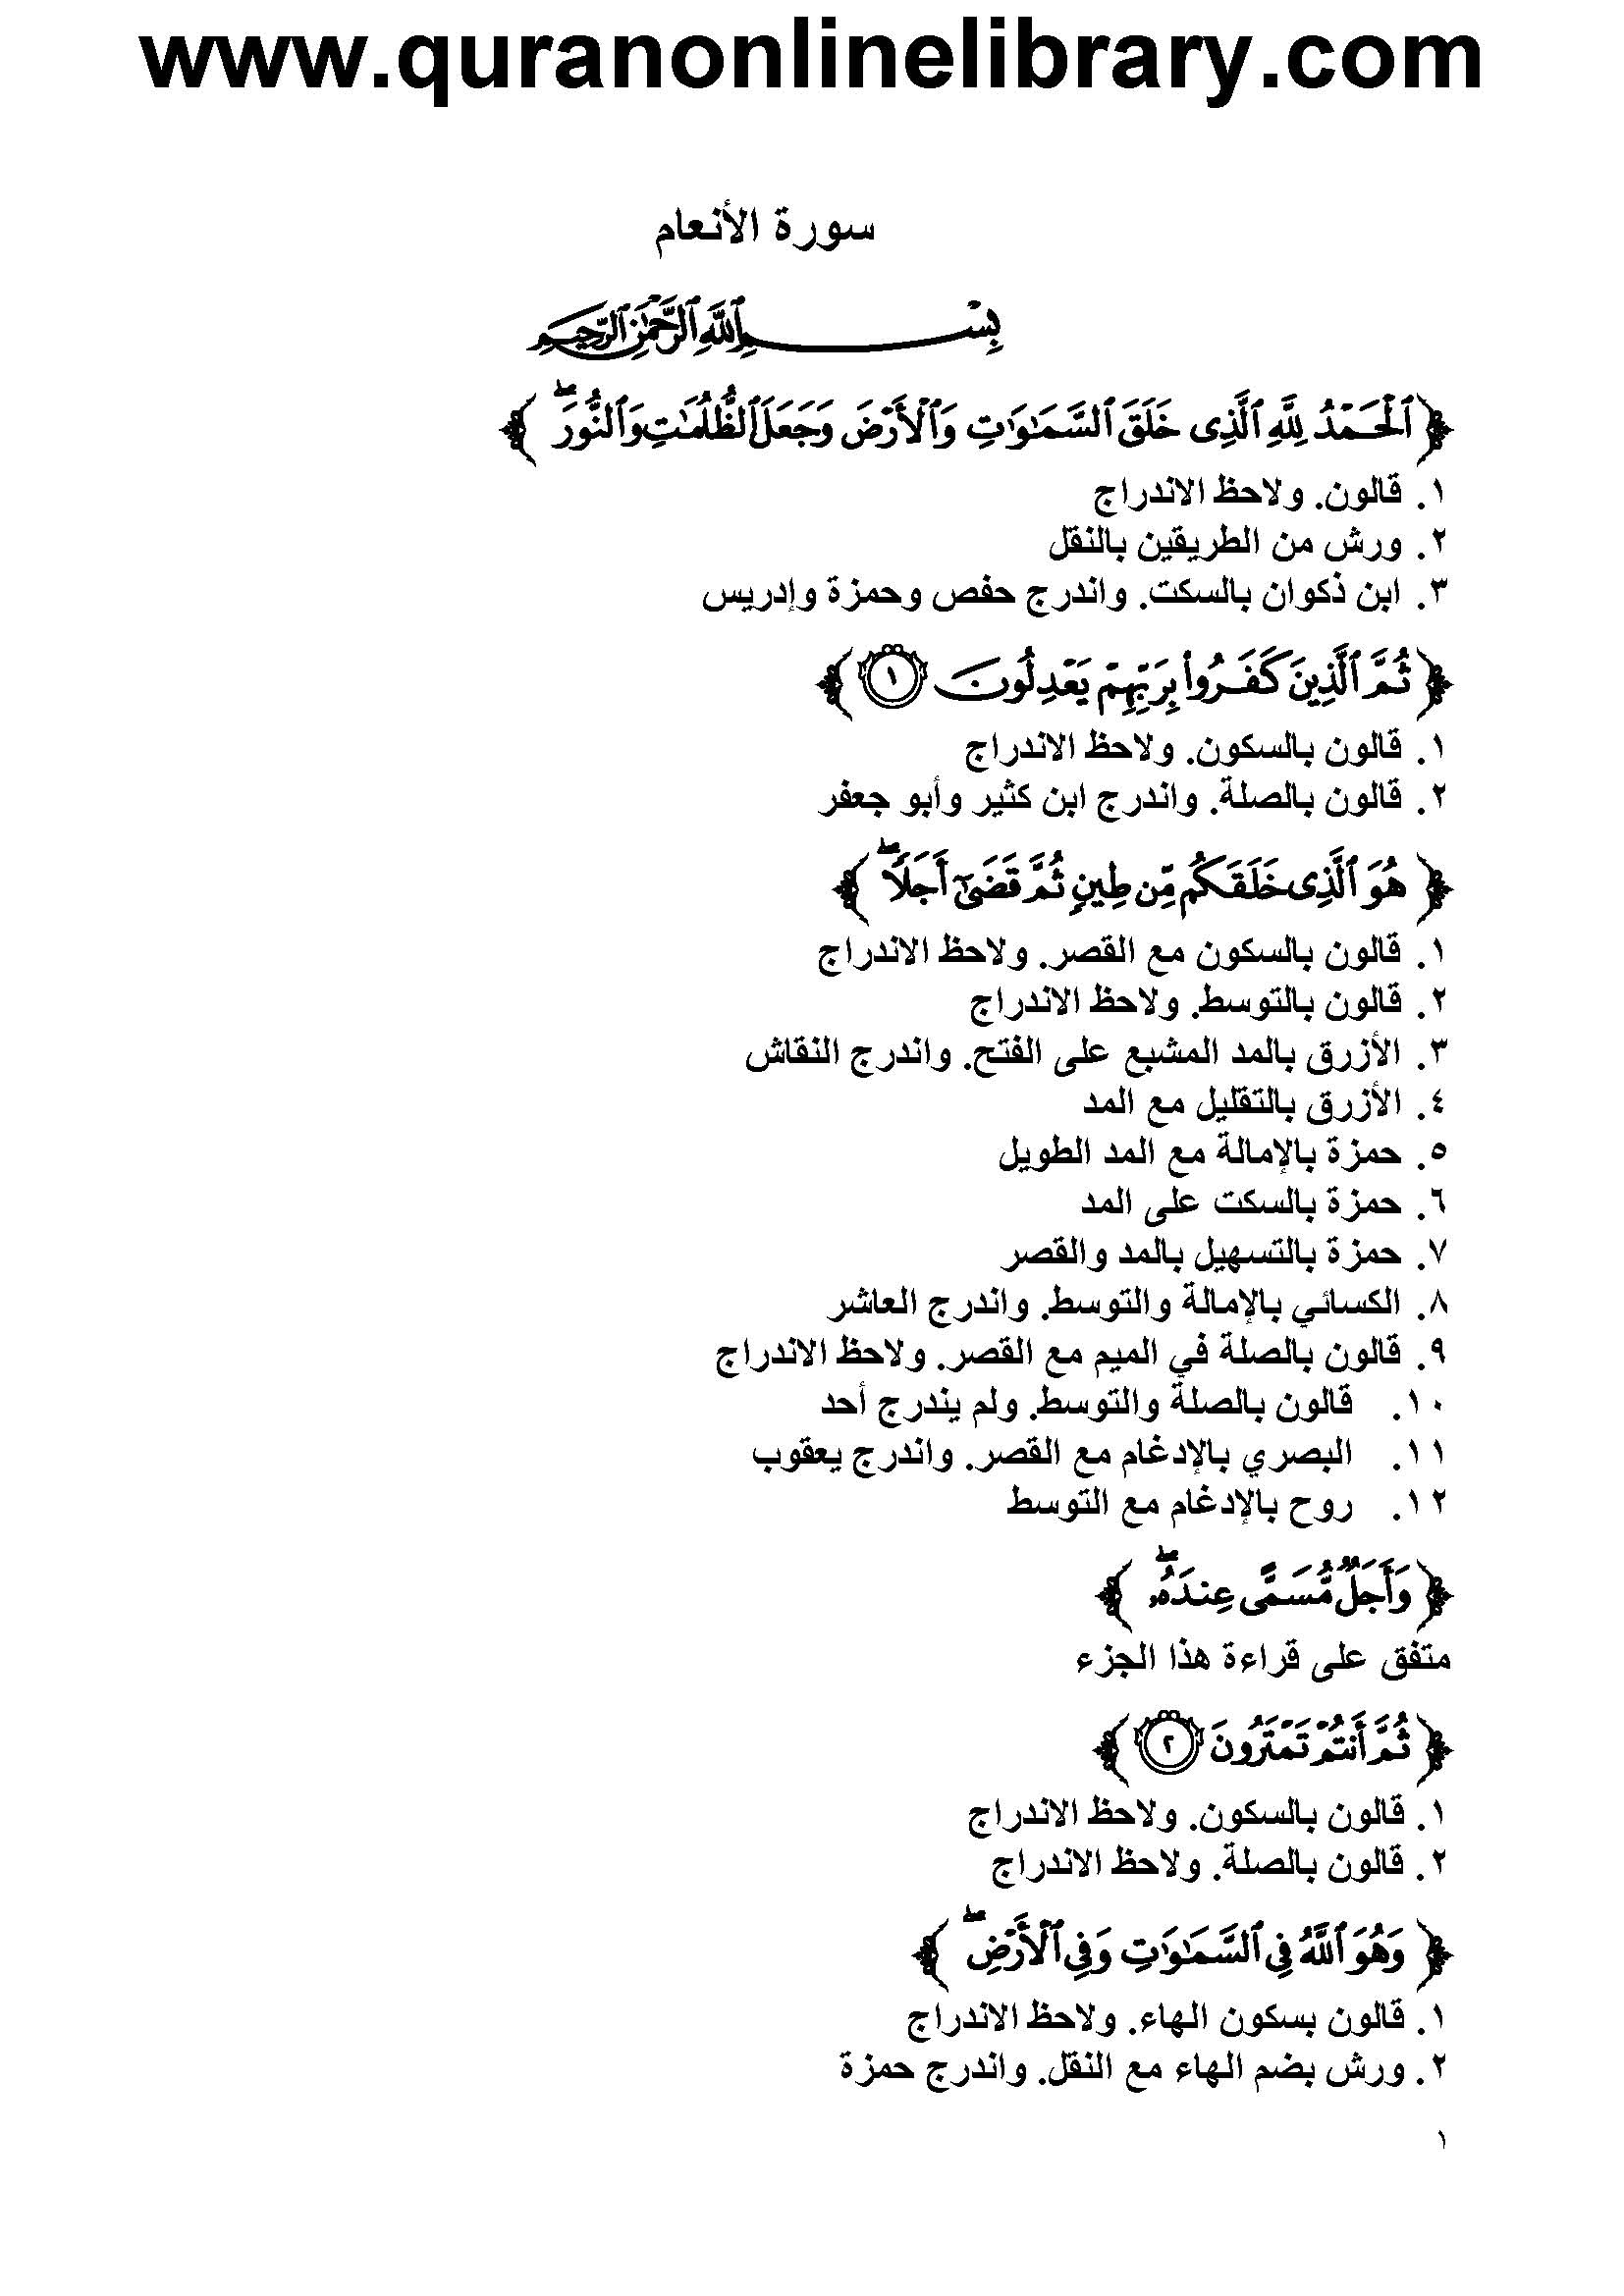 www.quranonlinelibrary.com
سورة الأنعام
بِسْمِ ٱللَّهِ ٱلرَّحْمَٰنِ ٱلرَّحِيمِ
﴿ ٱلْحَمْدُ لِلَّهِ ٱلَّذِى خَلَقَ ٱلسَّمَٰوَٰتِ وَٱلْأَرْضَ وَجَعَلَ ٱلظُّلُمَٰتِ وَٱلنُّورَ ۖ ﴾
١. قالون. ولاحظ الاندراج
٢. ورش من الطريقين بالنقل
٣. ابن ذكوان بالسكت. واندرج حفص وحمزة وإدريس
﴿ ثُمَّ ٱلَّذِينَ كَفَرُوا۟ بِرَبِّهِمْ يَعْدِلُونَ ١ ﴾
١. قالون بالسكون. ولاحظ الاندراج
٢. قالون بالصلة. واندرج ابن كثير وأبو جعفر
﴿ هُوَ ٱلَّذِى خَلَقَكُم مِّن طِينٍ ثُمَّ قَضَىٰٓ أَجَلًا ۖ ﴾
١. قالون بالسكون مع القصر. ولاحظ الاندراج
٢. قالون بالتوسط. ولاحظ الاندراج
٣. الأزرق بالمد المشبع على الفتح. واندرج النقاش
٤. الأزرق بالتقليل مع المد
٥. حمزة بالإمالة مع المد الطويل
٦. حمزة بالسكت على المد
٧. حمزة بالتسهيل بالمد والقصر
٨. الكسائي بالإمالة والتوسط. واندرج العاشر
٩. قالون بالصلة في الميم مع القصر. ولاحظ الاندراج
١٠. قالون بالصلة والتوسط. ولم يندرج أحد
١١. البصري بالإدغام مع القصر. واندرج يعقوب
١٢. روح بالإدغام مع التوسط
﴿ وَأَجَلٌ مُّسَمًّى عِندَهُۥ ۖ ﴾
متفق على قراءة هذا الجزء
﴿ ثُمَّ أَنتُمْ تَمْتَرُونَ ٢ ﴾
١. قالون بالسكون. ولاحظ الاندراج
٢. قالون بالصلة. ولاحظ الاندراج
﴿ وَهُوَ ٱللَّهُ فِى ٱلسَّمَٰوَٰتِ وَفِى ٱلْأَرْضِ ۖ ﴾
١. قالون بسكون الهاء. ولاحظ الاندراج
٢. ورش بضم الهاء مع النقل. واندرج حمزة
١